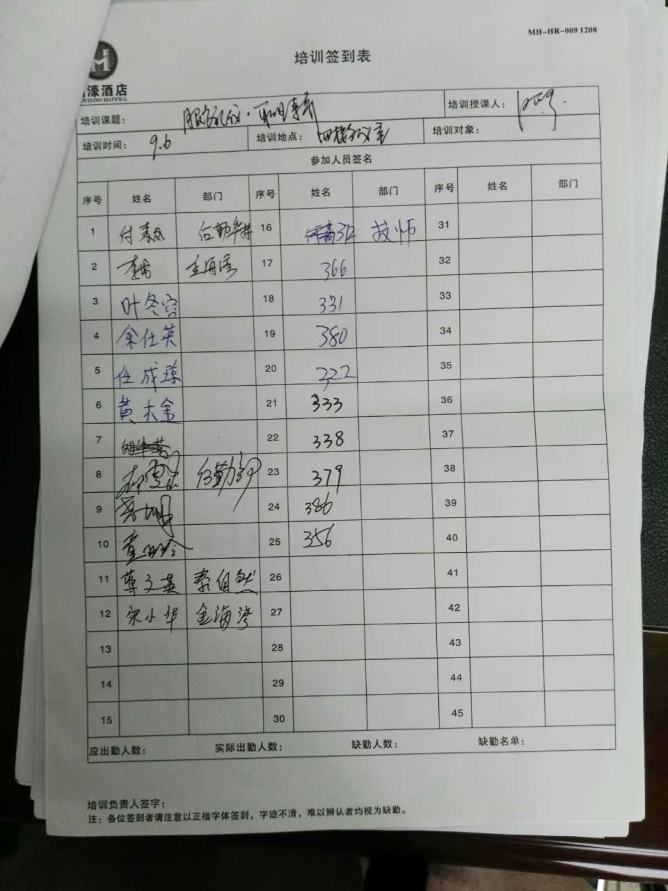 MH-HR-009 1208
濠酒店
NHOO HOTEL
培训签到表
培训课题： 培训授课人：
培训时间： 9.6 培训地点： 培训对象：
参加人员签名
序号 姓名 部门 序号 姓名 部门 序号 姓名 部门
1 16 技师 31
2 17 366 32
3 叶冬容 18 331 33
4 余仕英 19 380 34
5 任成琼 20 322 35
6 黄大金 21 333 36
7 22 338 37
8 后勤部 23 379 38
9 24 386 39
10 25 356 40
11 泰自然 26 41
12 宋小华 金海湾 27 42
13 28 43
14 29 44
15 30 45
应出勤人数： 实际出勤人数： 缺勤人数： 缺勤名单：
培训负责人签字：
注：各位签到者请注意以正楷字体签到，字迹不清，难以辨认者均视为缺勤。